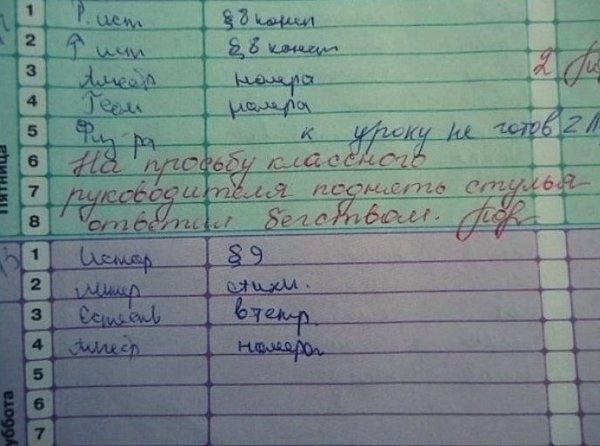 1 Р. ист § 8 конспект
2 ист § 8 конспект
3 Алгебр номера 2
4 Геом номера
5 Физ-ра к уроку не готов 2
6 На просьбу классного
7 руководителя поднять стулья
8 ответил бегством.
Пятница
1 Истор § 9
2 Литер стихи.
3 Естеств в тетр.
4 Алгебр номера
5
6
7
уббота